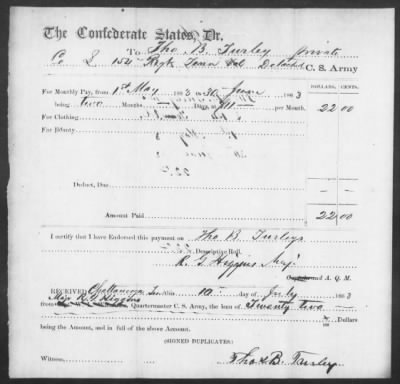 The Confederate States, Dr.
To Tho. B. Turley private
Co L 154 Regt Tenn Vol Detached C. S. Army
DOLLARS, CENTS.
For Monthly Pay, from 1st May 1863 to 30 June 1863
being two Months Days, at 11 — per Month, 22 00
For Clothing,
For Bounty
Deduct, Due
Amount Paid 22 00
I certify that I have Endorsed this payment on Tho B Turleys
Descriptive Roll.
R. G. Higgins Maj.
A. Q. M.
RECEIVED Chattanooga Tenn this 10th day of July 1863
from Maj R. G. Higgins Quartermaster C. S. Army, the sum of Twenty two Dollars
being the Amount, and in full of the above Amount.
(SIGNED DUPLICATES)
Witness, Thos B. Turley